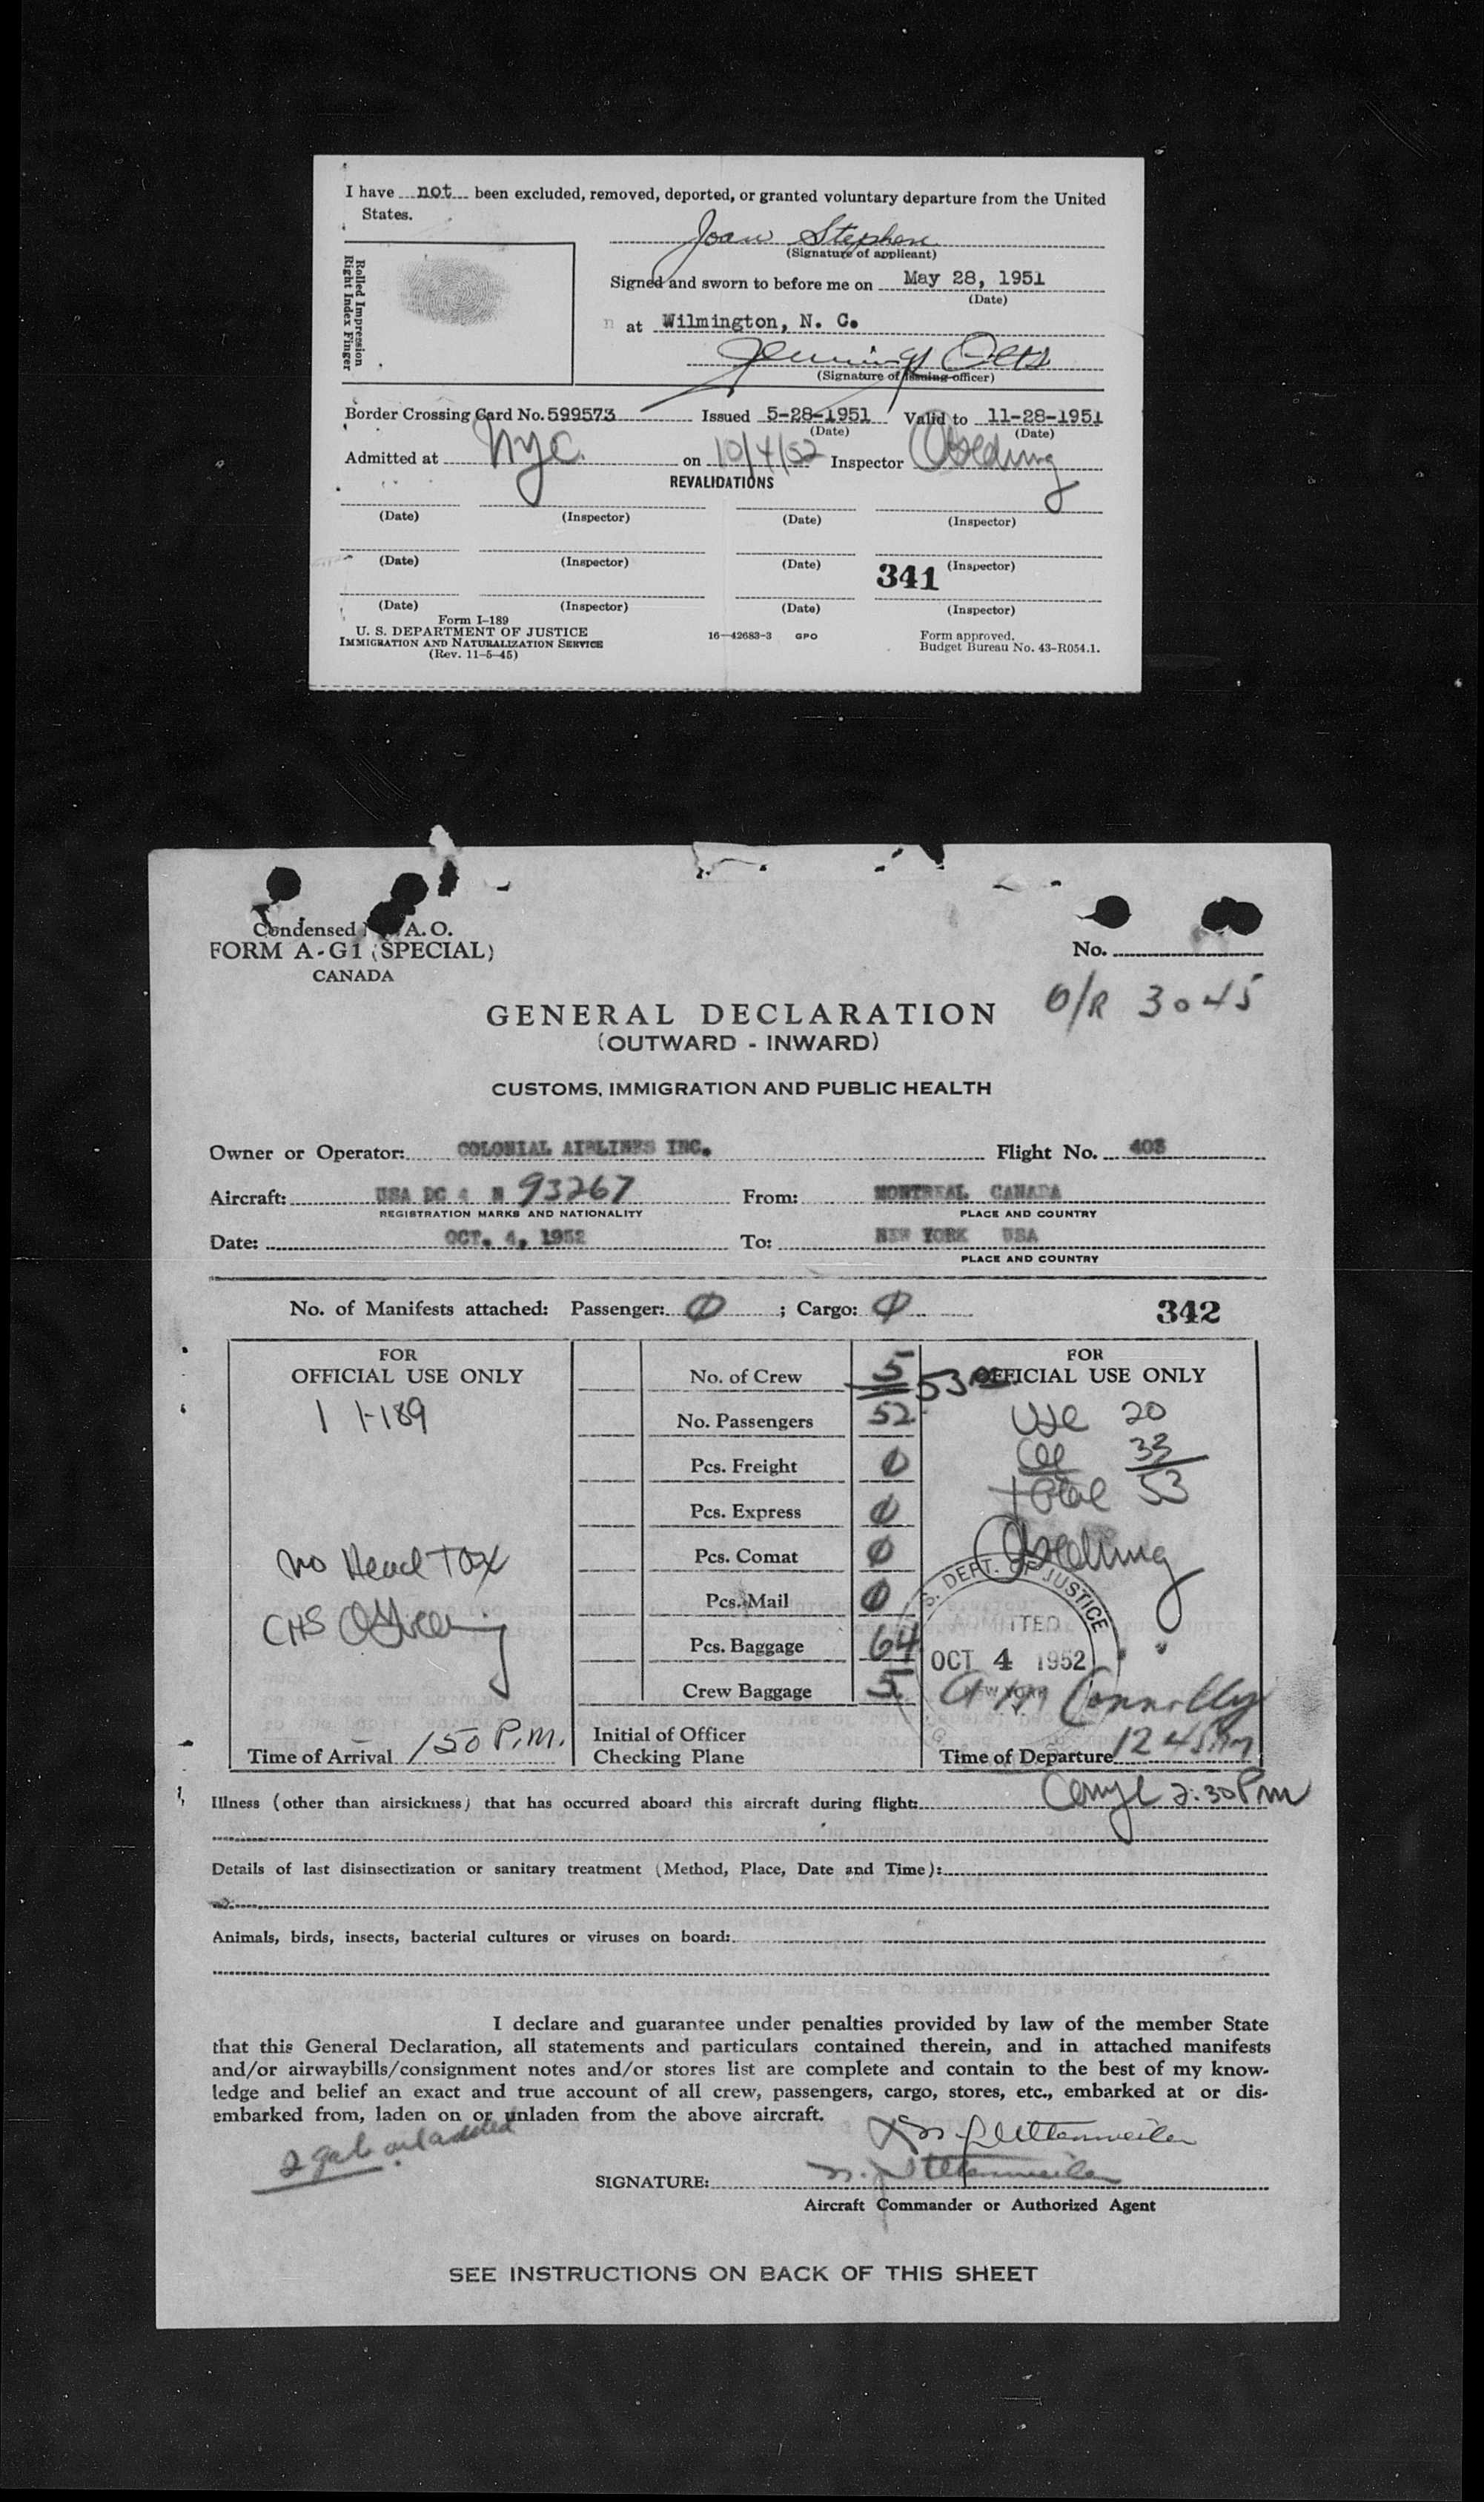 I have not been excluded, removed, deported, or granted voluntary departure from the United
States.
Joan Stephen
(Signature of applicant)
Rolled Impression
Right Index Finger
Signed and sworn to before me on May 28, 1951
(Date)
at Wilmington, N. C.
Jennings Otts
(Signature of issuing officer)
Border Crossing Card No. 599573 Issued 5-28-1951 Valid to 11-28-1951
(Date) (Date)
Admitted at NYC. on 10/4/52 Inspector
REVALIDATIONS
(Date) (Inspector) (Date) (Inspector)
(Date) (Inspector) (Date) (Inspector)
341
(Date) (Inspector) (Date) (Inspector)
Form I-189
U. S. DEPARTMENT OF JUSTICE
IMMIGRATION AND NATURALIZATION SERVICE
(Rev. 11-5-45)
16—42683-3 GPO
Form approved.
Budget Bureau No. 43-R054.1.
Condensed A. O.
FORM A-G1 (SPECIAL)
CANADA
No.
O/R 3045
GENERAL DECLARATION
(OUTWARD - INWARD)
CUSTOMS, IMMIGRATION AND PUBLIC HEALTH
Owner or Operator: COLONIAL AIRLINES INC. Flight No. 403
Aircraft: USA DC 4 N 93267 From: MONTREAL CANADA
REGISTRATION MARKS AND NATIONALITY PLACE AND COUNTRY
Date: OCT. 4, 1952 To: NEW YORK USA
PLACE AND COUNTRY
No. of Manifests attached: Passenger: 0 ; Cargo: 0 342
FOR
OFFICIAL USE ONLY
1 I-189
No Head Tax
CHS
Time of Arrival 150 P.M.
No. of Crew 5
53
No. Passengers 52
Pcs. Freight 0
Pcs. Express 0
Pcs. Comat 0
Pcs. Mail 0
Pcs. Baggage 64
Crew Baggage 5
Initial of Officer
Checking Plane
FOR
OFFICIAL USE ONLY
USC 20
33
Total 53
DEPT. OF JUSTICE
ADMITTED
OCT 4 1952
NEW YORK
Connolly
Time of Departure 1245 Pm
2:30 Pm
Illness (other than airsickness) that has occurred aboard this aircraft during flight:
Details of last disinsectization or sanitary treatment (Method, Place, Date and Time):
Animals, birds, insects, bacterial cultures or viruses on board:
I declare and guarantee under penalties provided by law of the member State
that this General Declaration, all statements and particulars contained therein, and in attached manifests
and/or airwaybills/consignment notes and/or stores list are complete and contain to the best of my know-
ledge and belief an exact and true account of all crew, passengers, cargo, stores, etc., embarked at or dis-
embarked from, laden on or unladen from the above aircraft.
2 gals oil added
SIGNATURE:
Aircraft Commander or Authorized Agent
SEE INSTRUCTIONS ON BACK OF THIS SHEET